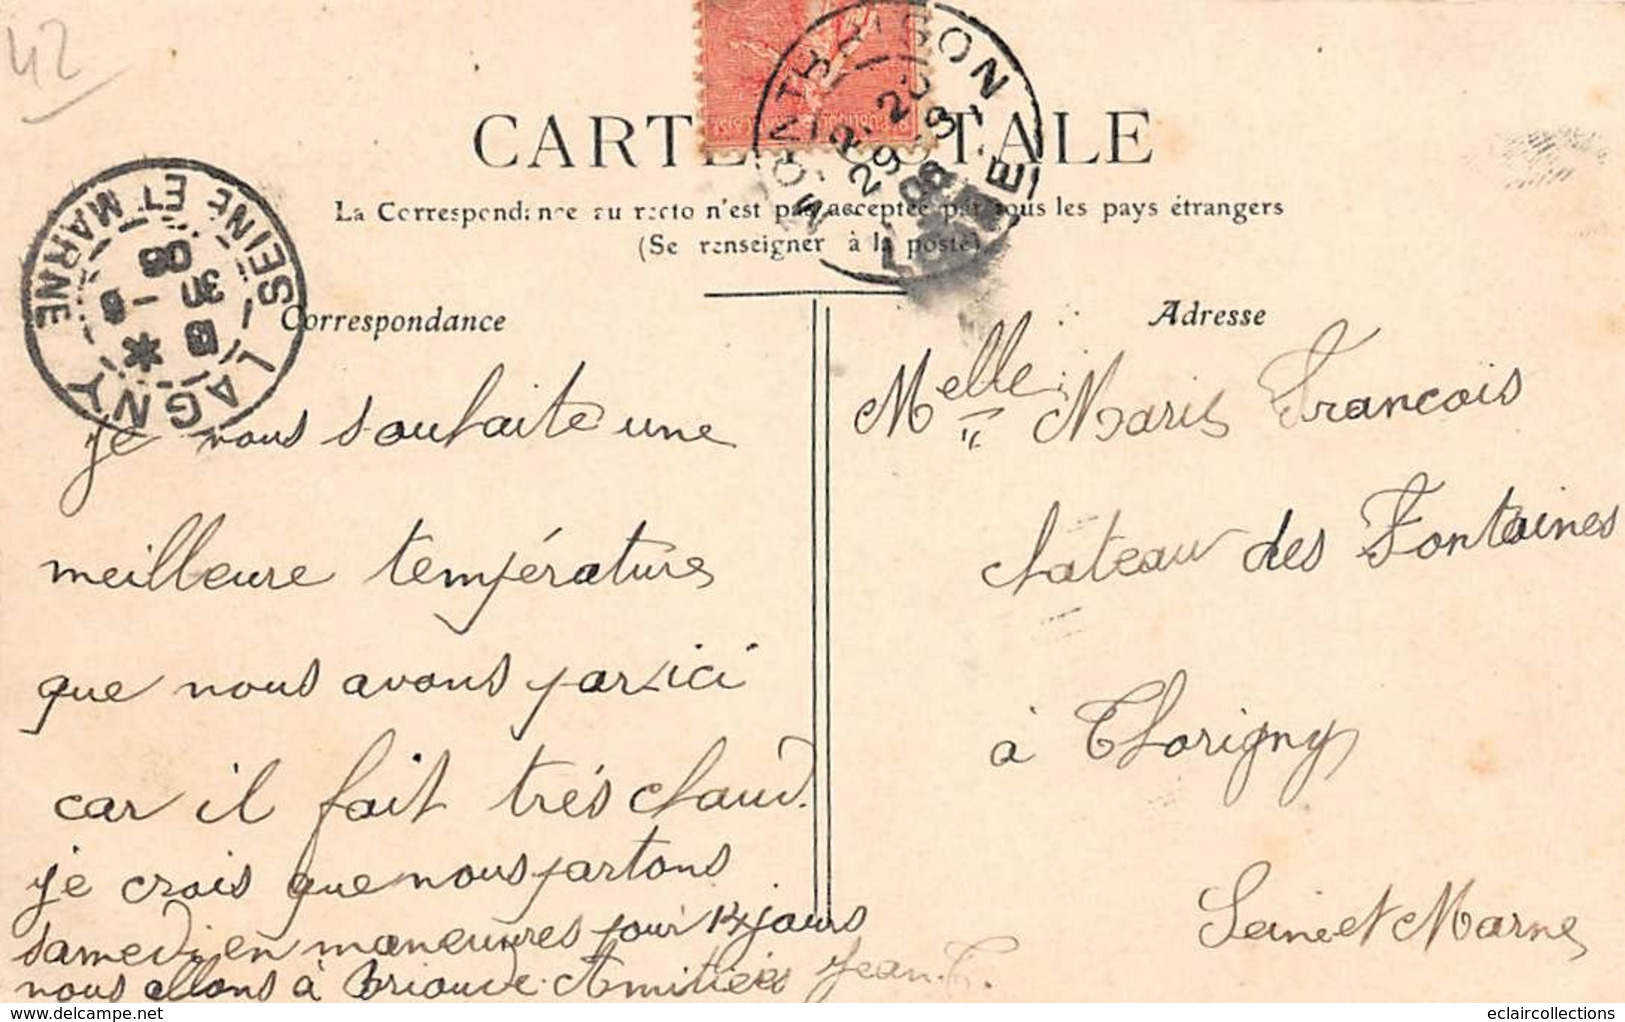 42
CARTE POSTALE
MONTBRISON
LOIRE
La Correspondance au recto n'est pas acceptée par tous les pays étrangers
(Se renseigner à la poste)
LAGNY SEINE ET MARNE
Correspondance
Adresse
je vous souhaite une
meilleure température
que nous avons par ici
car il fait très chaud.
je crois que nous partons
samedi en maneuvres pour 14 jours
nous allons à Brioude. Amitiées Jean. C.
Melle Marie Francois
château des Fontaines
à Thorigny
Seine et Marne
www.delcampe.net
eclaircollections